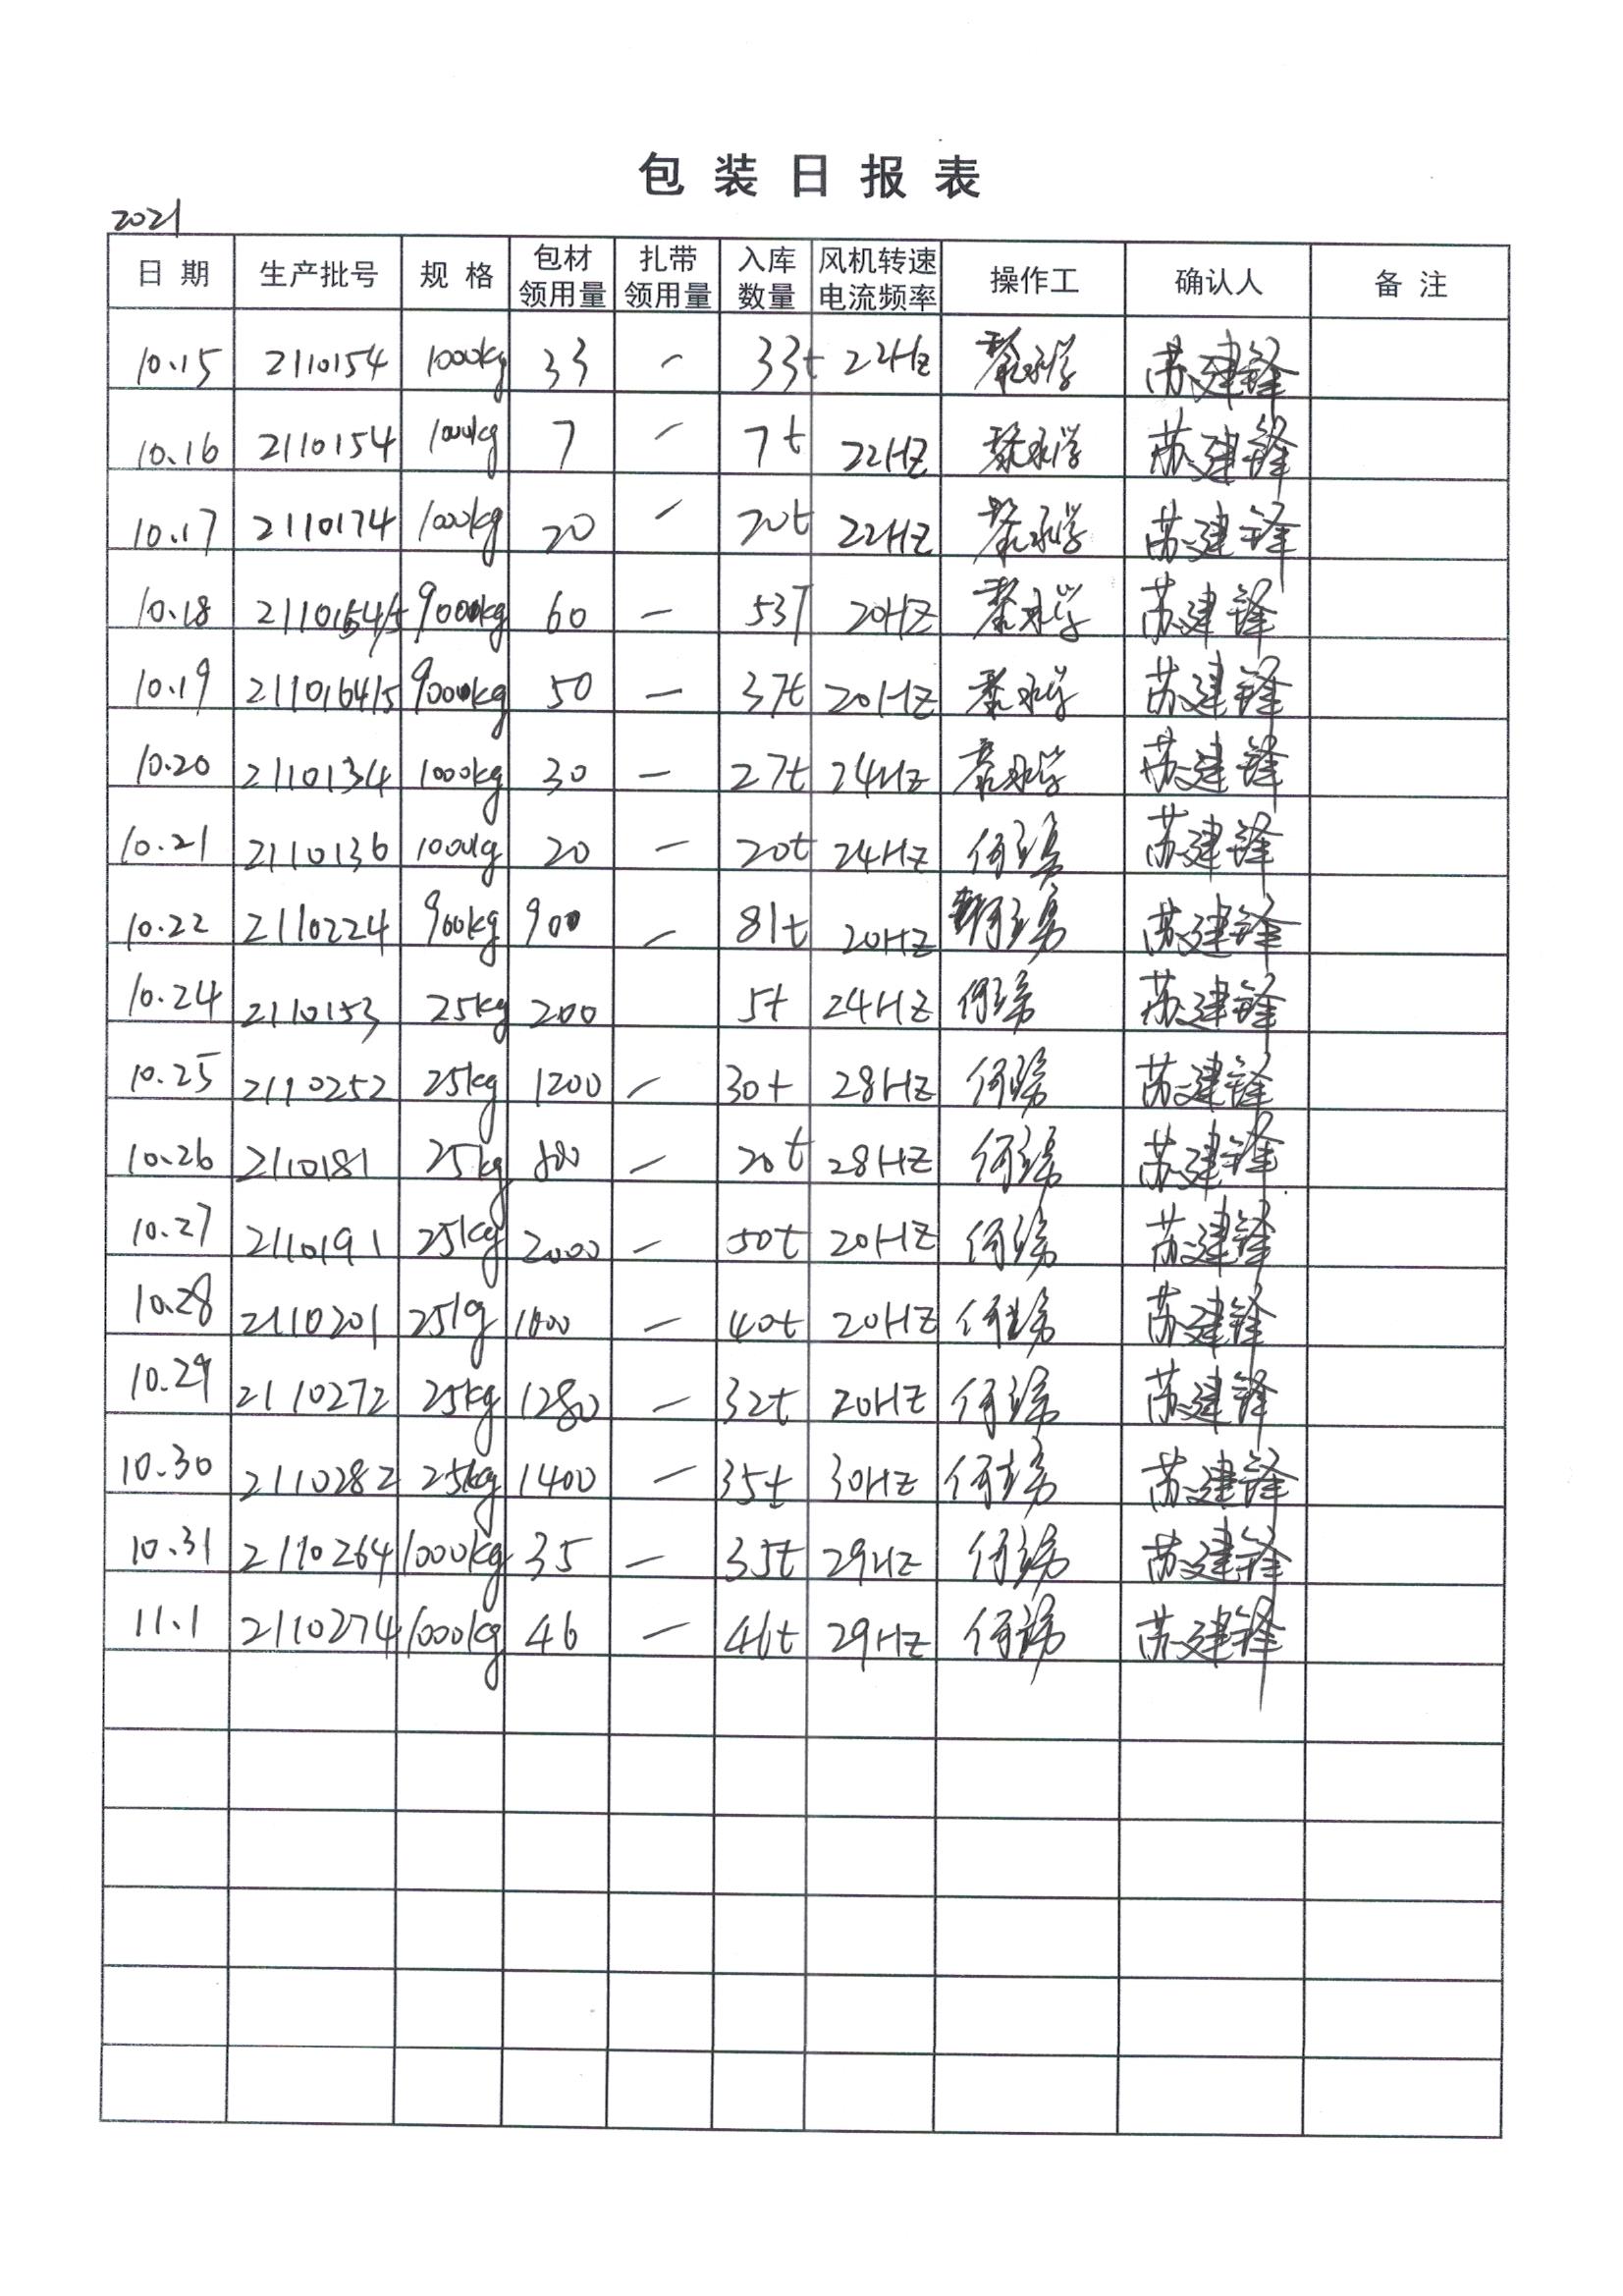 包装日报表
2021
日期 生产批号 规格 包材领用量 扎带领用量 入库数量 风机转速电流频率 操作工 确认人 备注
10.15 2110154 1000kg 33 — 33t 22HZ 苏建锋
10.16 2110154 1000kg 7 — 7t 22HZ 苏建锋
10.17 2110174 1000kg 20 — 20t 22HZ 苏建锋
10.18 9000kg 60 — 20HZ 苏建锋
10.19 2110164/5 9000kg 50 — 37t 20HZ 苏建锋
10.20 2110134 1000kg 30 — 27t 24HZ 苏建锋
10.21 2110136 1000kg 20 — 20t 24HZ 苏建锋
10.22 2110224 900kg 900 — 81t 20HZ 苏建锋
10.24 2110153 25kg 200 5t 24HZ 苏建锋
10.25 2110252 25kg 1200 — 30t 28HZ 苏建锋
10.26 2110181 25kg 800 — 20t 28HZ 苏建锋
10.27 2110191 25kg 2000 — 50t 20HZ 苏建锋
10.28 2110201 25kg — 40t 20HZ 苏建锋
10.29 2110272 25kg 1280 — 32t 20HZ 苏建锋
10.30 2110282 25kg 1400 — 35t 30HZ 苏建锋
10.31 2110264 1000kg 35 — 35t 29HZ 苏建锋
11.1 2110274 1000kg 46 — 46t 29HZ 苏建锋